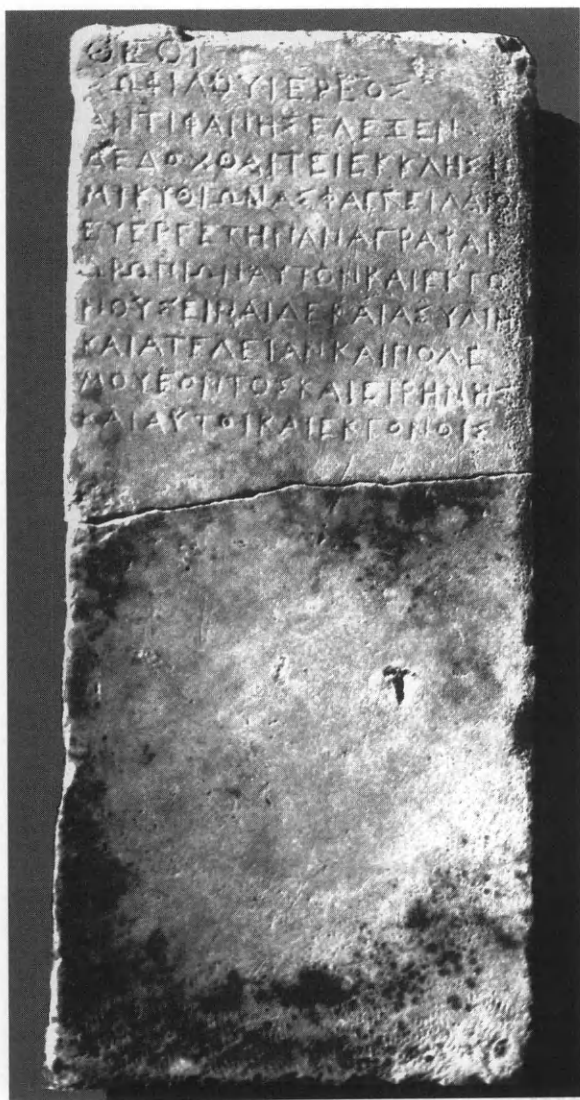 ΘΕΟΙ
ΣΩΦΙΛΟΥΙΕΡΕΟΣ
ΑΝΤΙΦΑΝΗΣΕΛΕΞΕΝ
ΔΕΔΟΧΘΑΙΤΕΙΕΚΚΛΗΣΙΗ
ΜΙΚΥΘΙΩΝΑΣΦΑΓΓΕΙΛΑΙΟΝ
ΕΥΕΡΓΕΤΗΝΑΝΑΓΡΑΨΑΙ
ΩΡΩΠΙΩΝΑΥΤΟΝΚΑΙΕΚΓΟ
ΝΟΥΣΕΙΝΑΙΔΕΚΑΙΑΣΥΛΙΗΝ
ΚΑΙΑΤΕΛΕΙΑΝΚΑΙΠΟΛΕ
ΜΟΥΕΟΝΤΟΣΚΑΙΕΙΡΗΝΗΣ
ΚΑΙΑΥΤΟΙΚΑΙΕΚΓΟΝΟΙΣ